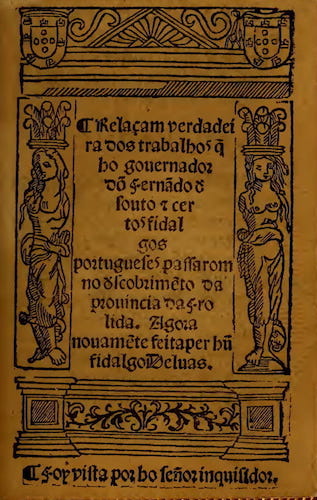 ¶ Relaçam verdadei
ra dos trabalhos q̃
ho gouernador
dõ Fernãdo d̃
souto ⁊ cer
tos fidal
gos
portugueses passarom
no d̃scobrimẽto da
prouincia da Fro
lida. Agora
nouamẽte feita per hũ
fidalgo Deluas.
¶ Foy vista por ho señor inquisidor.